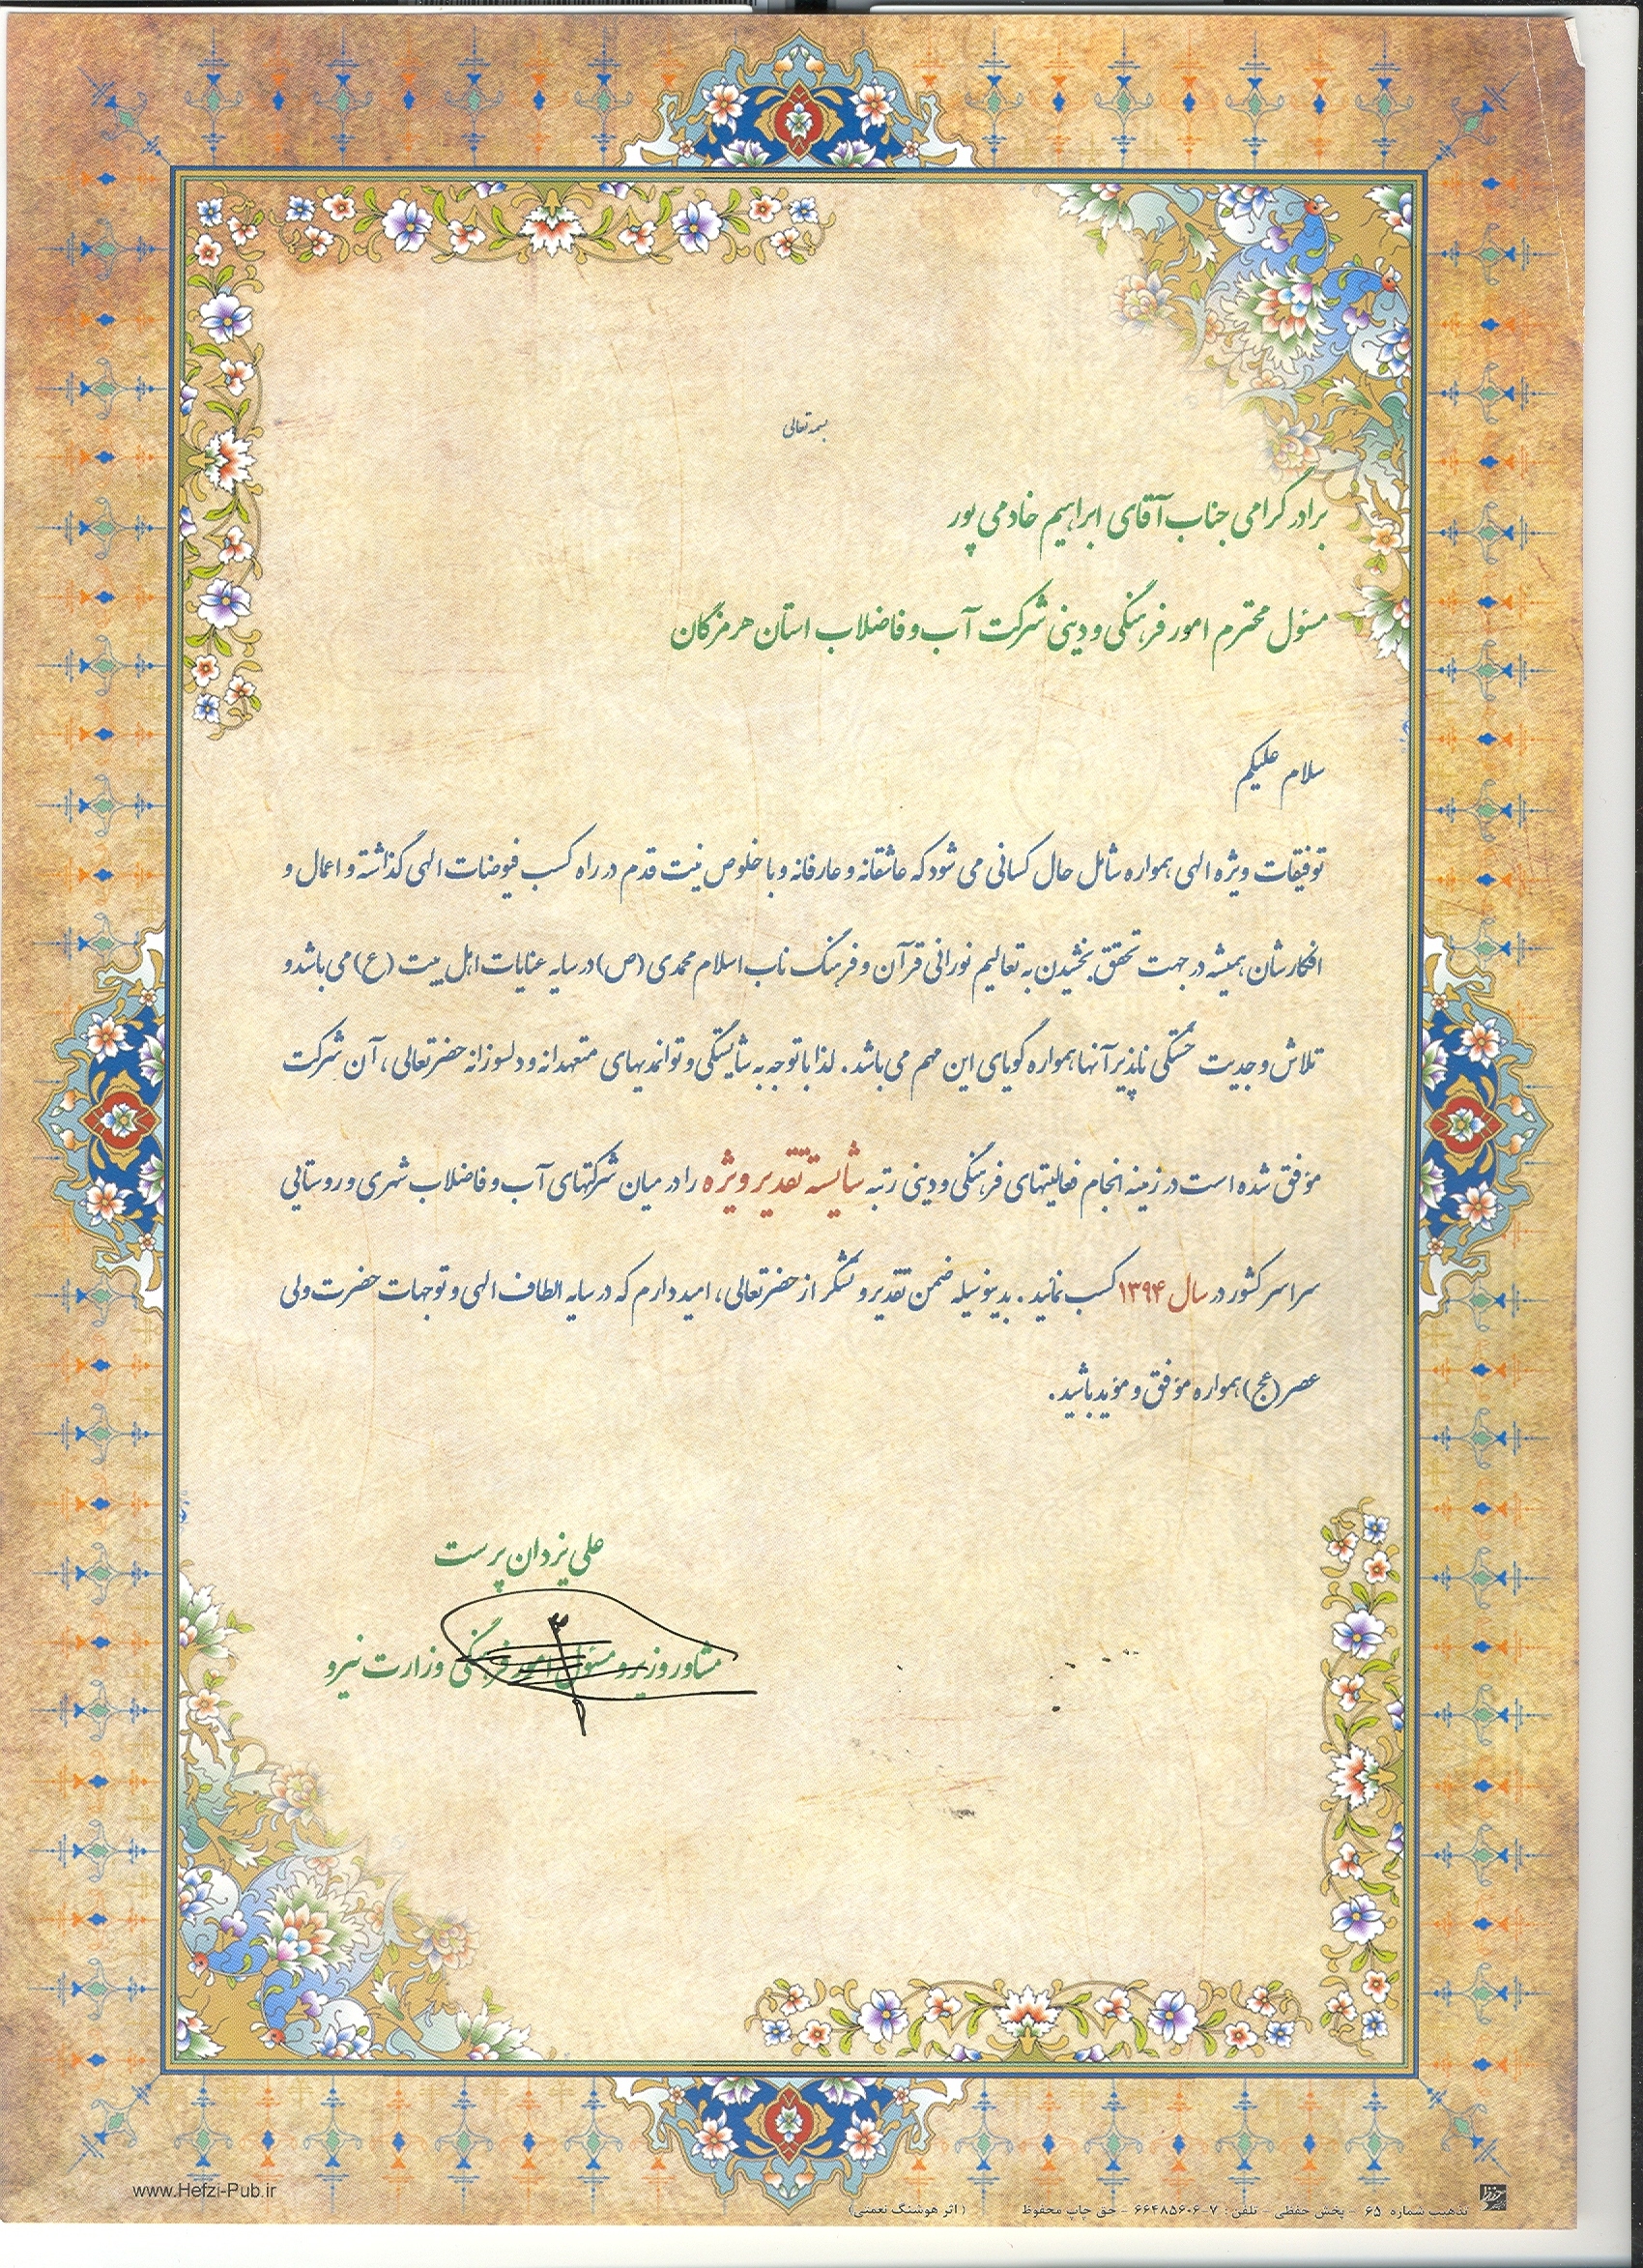 بسمه تعالی
برادر گرامی جناب آقای ابراهیم خادمی پور
مسئول محترم امور فرهنگی و دینی شرکت آب و فاضلاب استان هرمزگان
سلام علیکم
توفیقات ویژه الهی همواره شامل حال کسانی می شود که عاشقانه و عارفانه و با خلوص نیت قدم در راه کسب فیوضات الهی گذاشته و اعمال و
افکارشان همیشه در جهت تحقق بخشیدن به تعالیم نورانی قرآن و فرهنگ ناب اسلام محمدی (ص) در سایه عنایات اهل بیت (ع) می باشد و
تلاش و جدیت خستگی ناپذیر آنها همواره گویای این مهم می باشد. لذا با توجه به شایستگی و توانمدیهای متعهدانه و دلسوزانه حضرتعالی، آن شرکت
موفق شده است در زمینه انجام فعالیتهای فرهنگی و دینی رتبه شایسته تقدیر ویژه را در میان شرکتهای آب و فاضلاب شهری و روستایی
سراسر کشور در سال ۱۳۹۴ کسب نمائید. بدینوسیله ضمن تقدیر و تشکر از حضرتعالی، امید دارم که در سایه الطاف الهی و توجهات حضرت ولی
عصر (عج) همواره موفق و موید باشید.
علی یزدان پرست
مشاور وزیر و مسئول امور فرهنگی وزارت نیرو
تذهیب شماره ۶۵ - پخش حفظی - تلفن: ۷-۶۶۴۸۵۶۰۶ - حق چاپ محفوظ (اثر هوشنگ نعمتی)
www.Hefzi-Pub.ir